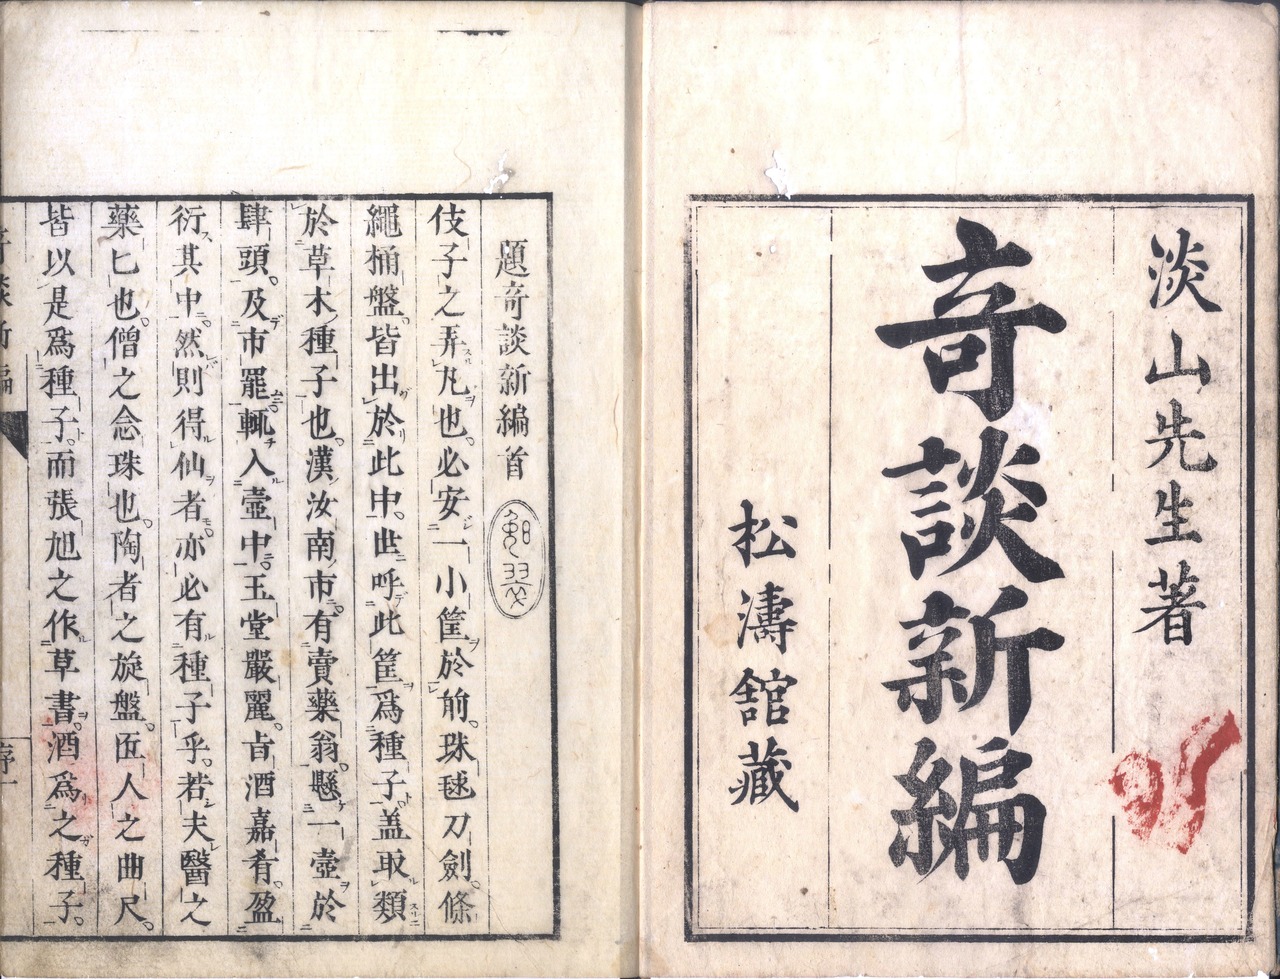 淡山先生著
奇談新編
松濤舘藏
題奇談新編首
伎子之弄凡也必安一小筐於前珠毬刀劍條
繩桶盤皆出於此中世呼此筐爲種子盖取類
於草木種子也漢汝南市有賣藥翁懸一壺於
肆頭及市罷輒入壺中玉堂嚴麗旨酒嘉肴盈
衍其中然則得仙者亦必有種子乎若夫醫之
藥匕也僧之念珠也陶者之旋盤匠人之曲尺
皆以是爲種子而張旭之作草書酒爲之種子